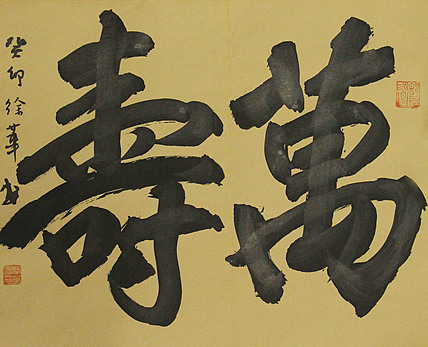 萬壽
癸卯徐華书